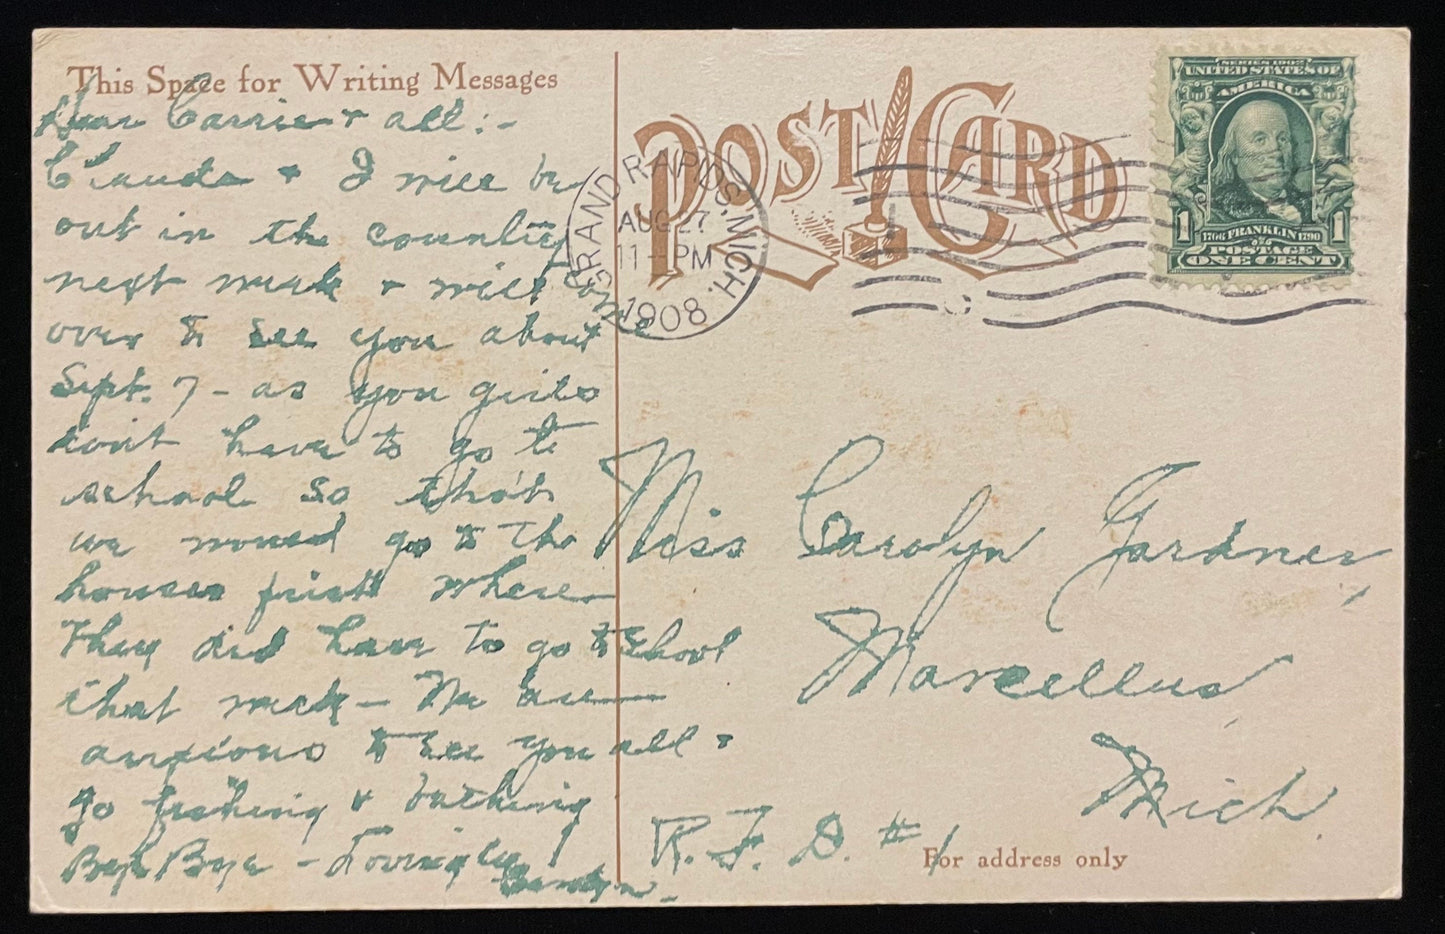 This Space for Writing Messages
Dear Carrie & all:-
Claude & I will be
out in the country
next week & will come
over to see you about
Sept. 7 - as you girls
don't have to go to
school so that
we would go to the
houses first where
they did have to go to school
that week - We are
anxious to see you all &
go fishing & bathing
Bye Bye - Lovingly
POST CARD
GRAND RAPIDS, MICH.
AUG 27
11 - PM
1908
SERIES 1902
UNITED STATES OF
AMERICA
1706 FRANKLIN 1790
1 POSTAGE 1
ONE CENT
Miss Carolyn Gardner,
Marcellus
Mich.
R.F.D. #1
For address only